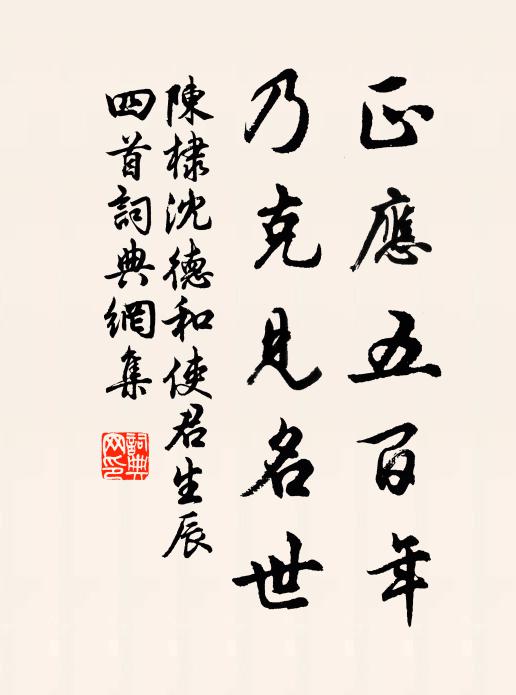 正應五百年
乃克見名世
陳棣沈德和使君生辰
四首詞典網集
詞典網印